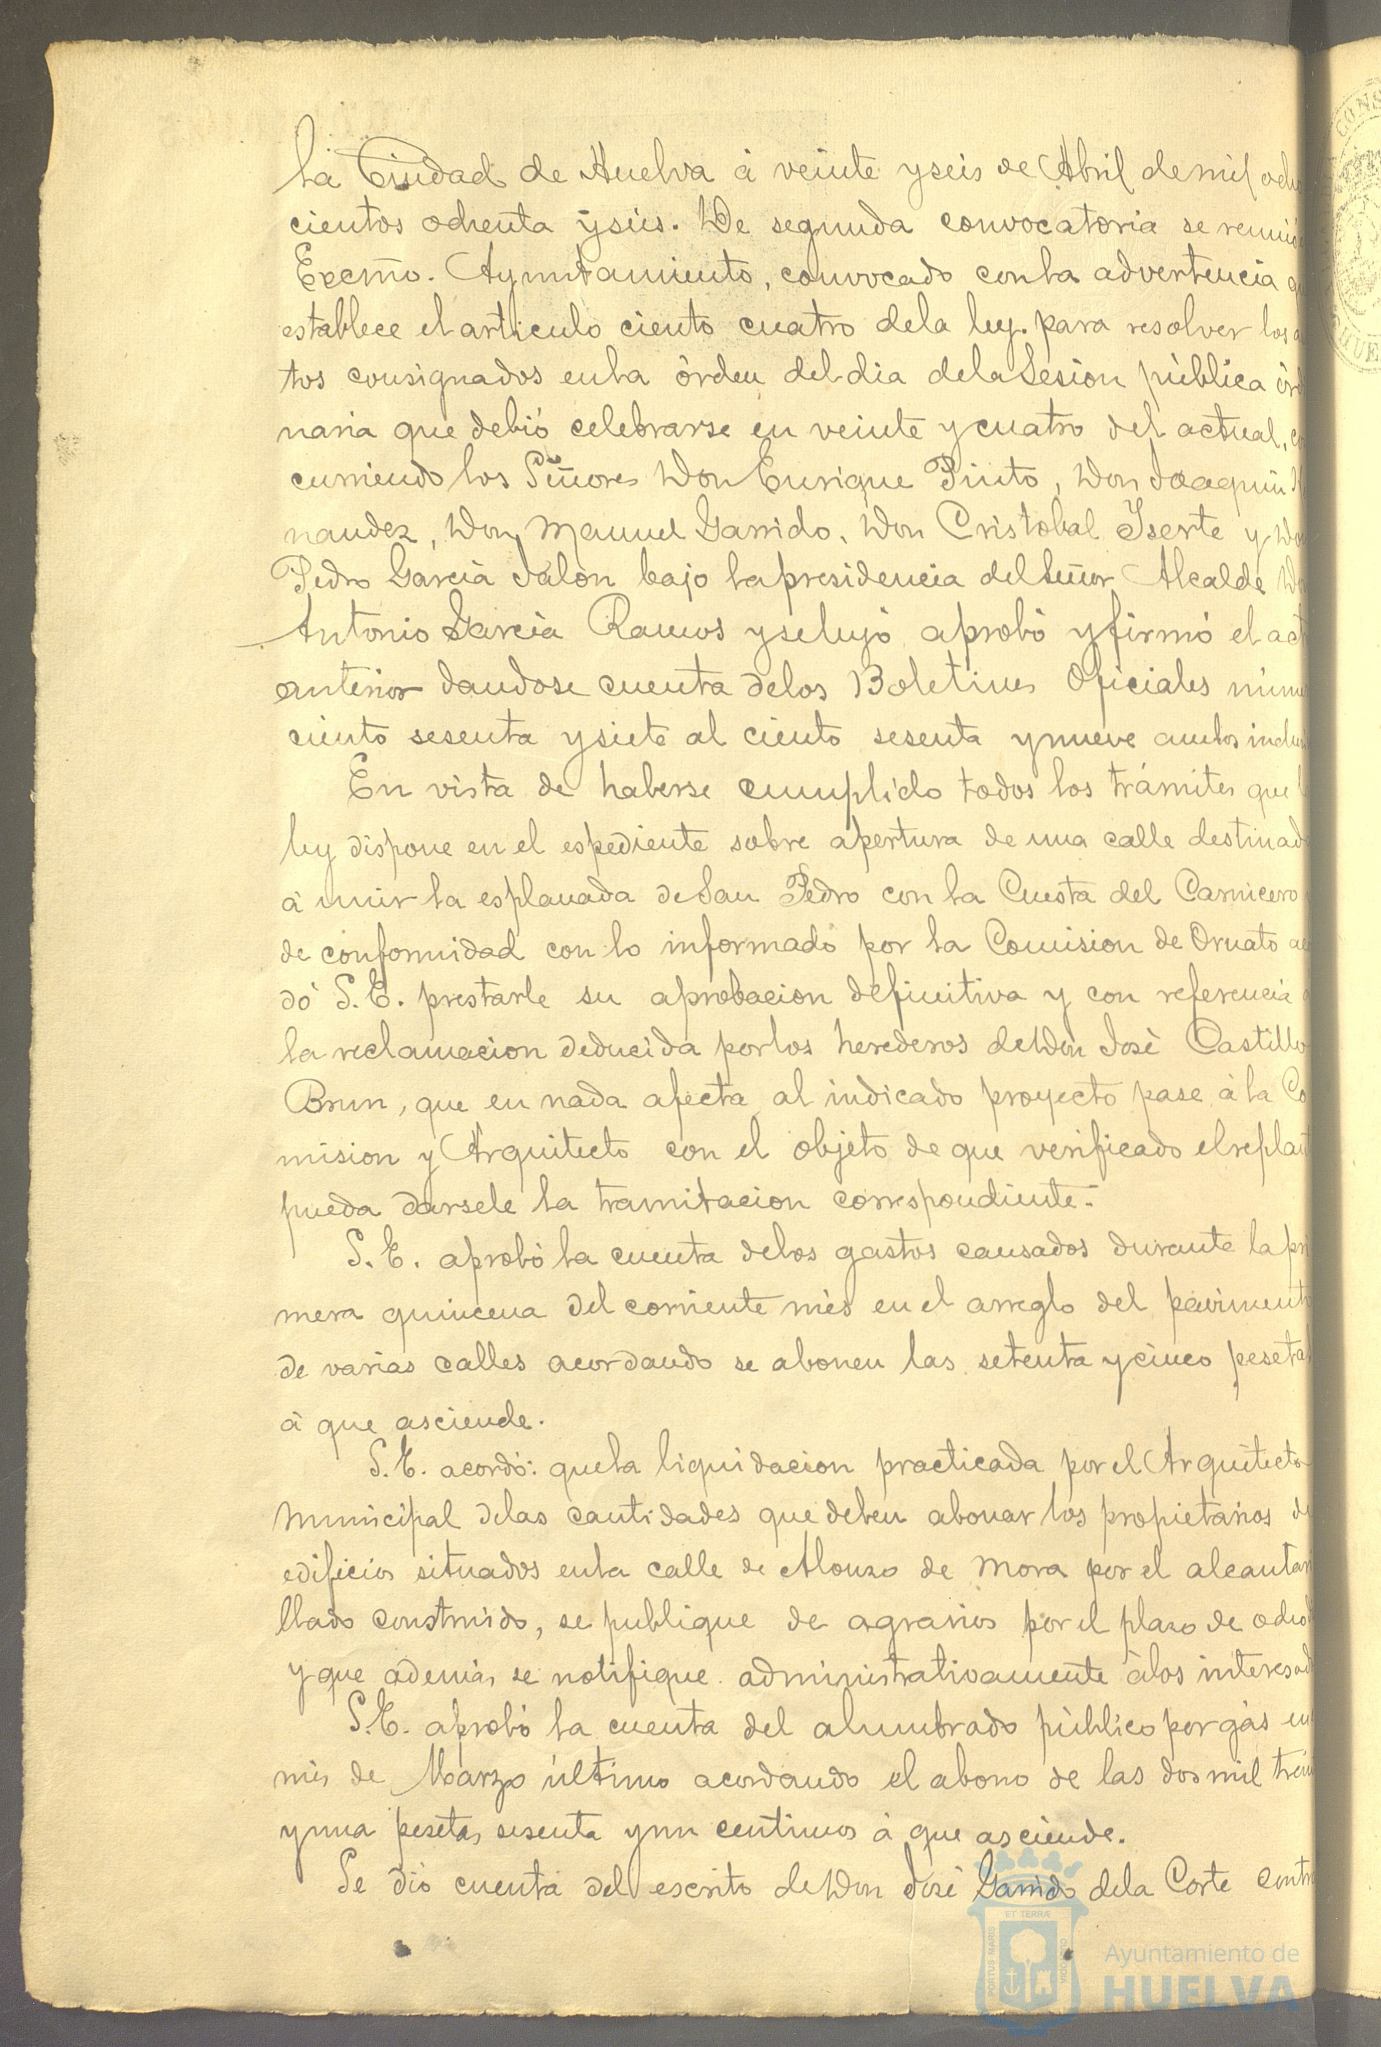 la Ciudad de Huelva á veinte y seis de Abril de mil ocho
cientos ochenta y seis. De segunda convocatoria se reunió
Excmo. Ayuntamiento, convocado con la advertencia q
establece el articulo ciento cuatro de la ley. para resolver los a
tos consignados en la órden del dia de la Sesion pública òrd
naria que debió celebrarse en veinte y cuatro del actual, co
curriendo los Señores Don Enrique Pinto, Don Joaquin
nandez, Don Manuel Garrido, Don Cristobal Iserte y Don
Pedro Garcia Jalòn bajo la presidencia del Señor Alcalde D
Antonio Garcia Ramos y se leyó aprobó y firmó el act
anterior dandose cuenta de los Boletines Oficiales núme
ciento sesenta y siete al ciento sesenta y nueve ambos inclus
En vista de haberse cumplido todos los trámites que l
ley dispone en el espediente sobre apertura de una calle destinad
à unir la esplanada de San Pedro con la Cuesta del Carnicero
de conformidad con lo informado por la Comision de Ornato ac
dó S.E. prestarle su aprobacion definitiva y con referencia
la reclamacion deducida por los herederos de Don José Castillo
Brun, que en nada afecta al indicado proyecto pase á la Co
mision y Arquitecto con el objeto de que verificado el replant
pueda darsele la tramitacion correspondiente.
S.E. aprobó la cuenta de los gastos causados durante la pri
mera quincena del corriente mès en el arreglo del paviment
de varias calles acordando se abonen las setenta y cinco peseta
á que asciende.
S.E. acordó: que la liquidacion practicada por el Arquitecto
Municipal de las cantidades que deben abonar los propietarios de
edificios situados en la calle de Alonzo de Mora por el alcantari
llado construido, se publique de agravios por el plazo de ocho
y que además se notifique administrativamente á los interesad
S.E. aprobó la cuenta del alumbrado público por gás en
mes de Marzo último acordando el abono de las dos mil trein
y una pesetas sesenta y un centimos á que asciende.
Se dió cuenta del escrito de Don José Garrido de la Corte contr
PORTUS MARIS
ET TERRÆ
CUSTODIA
Ayuntamiento de
HUELVA
CONS
HUE